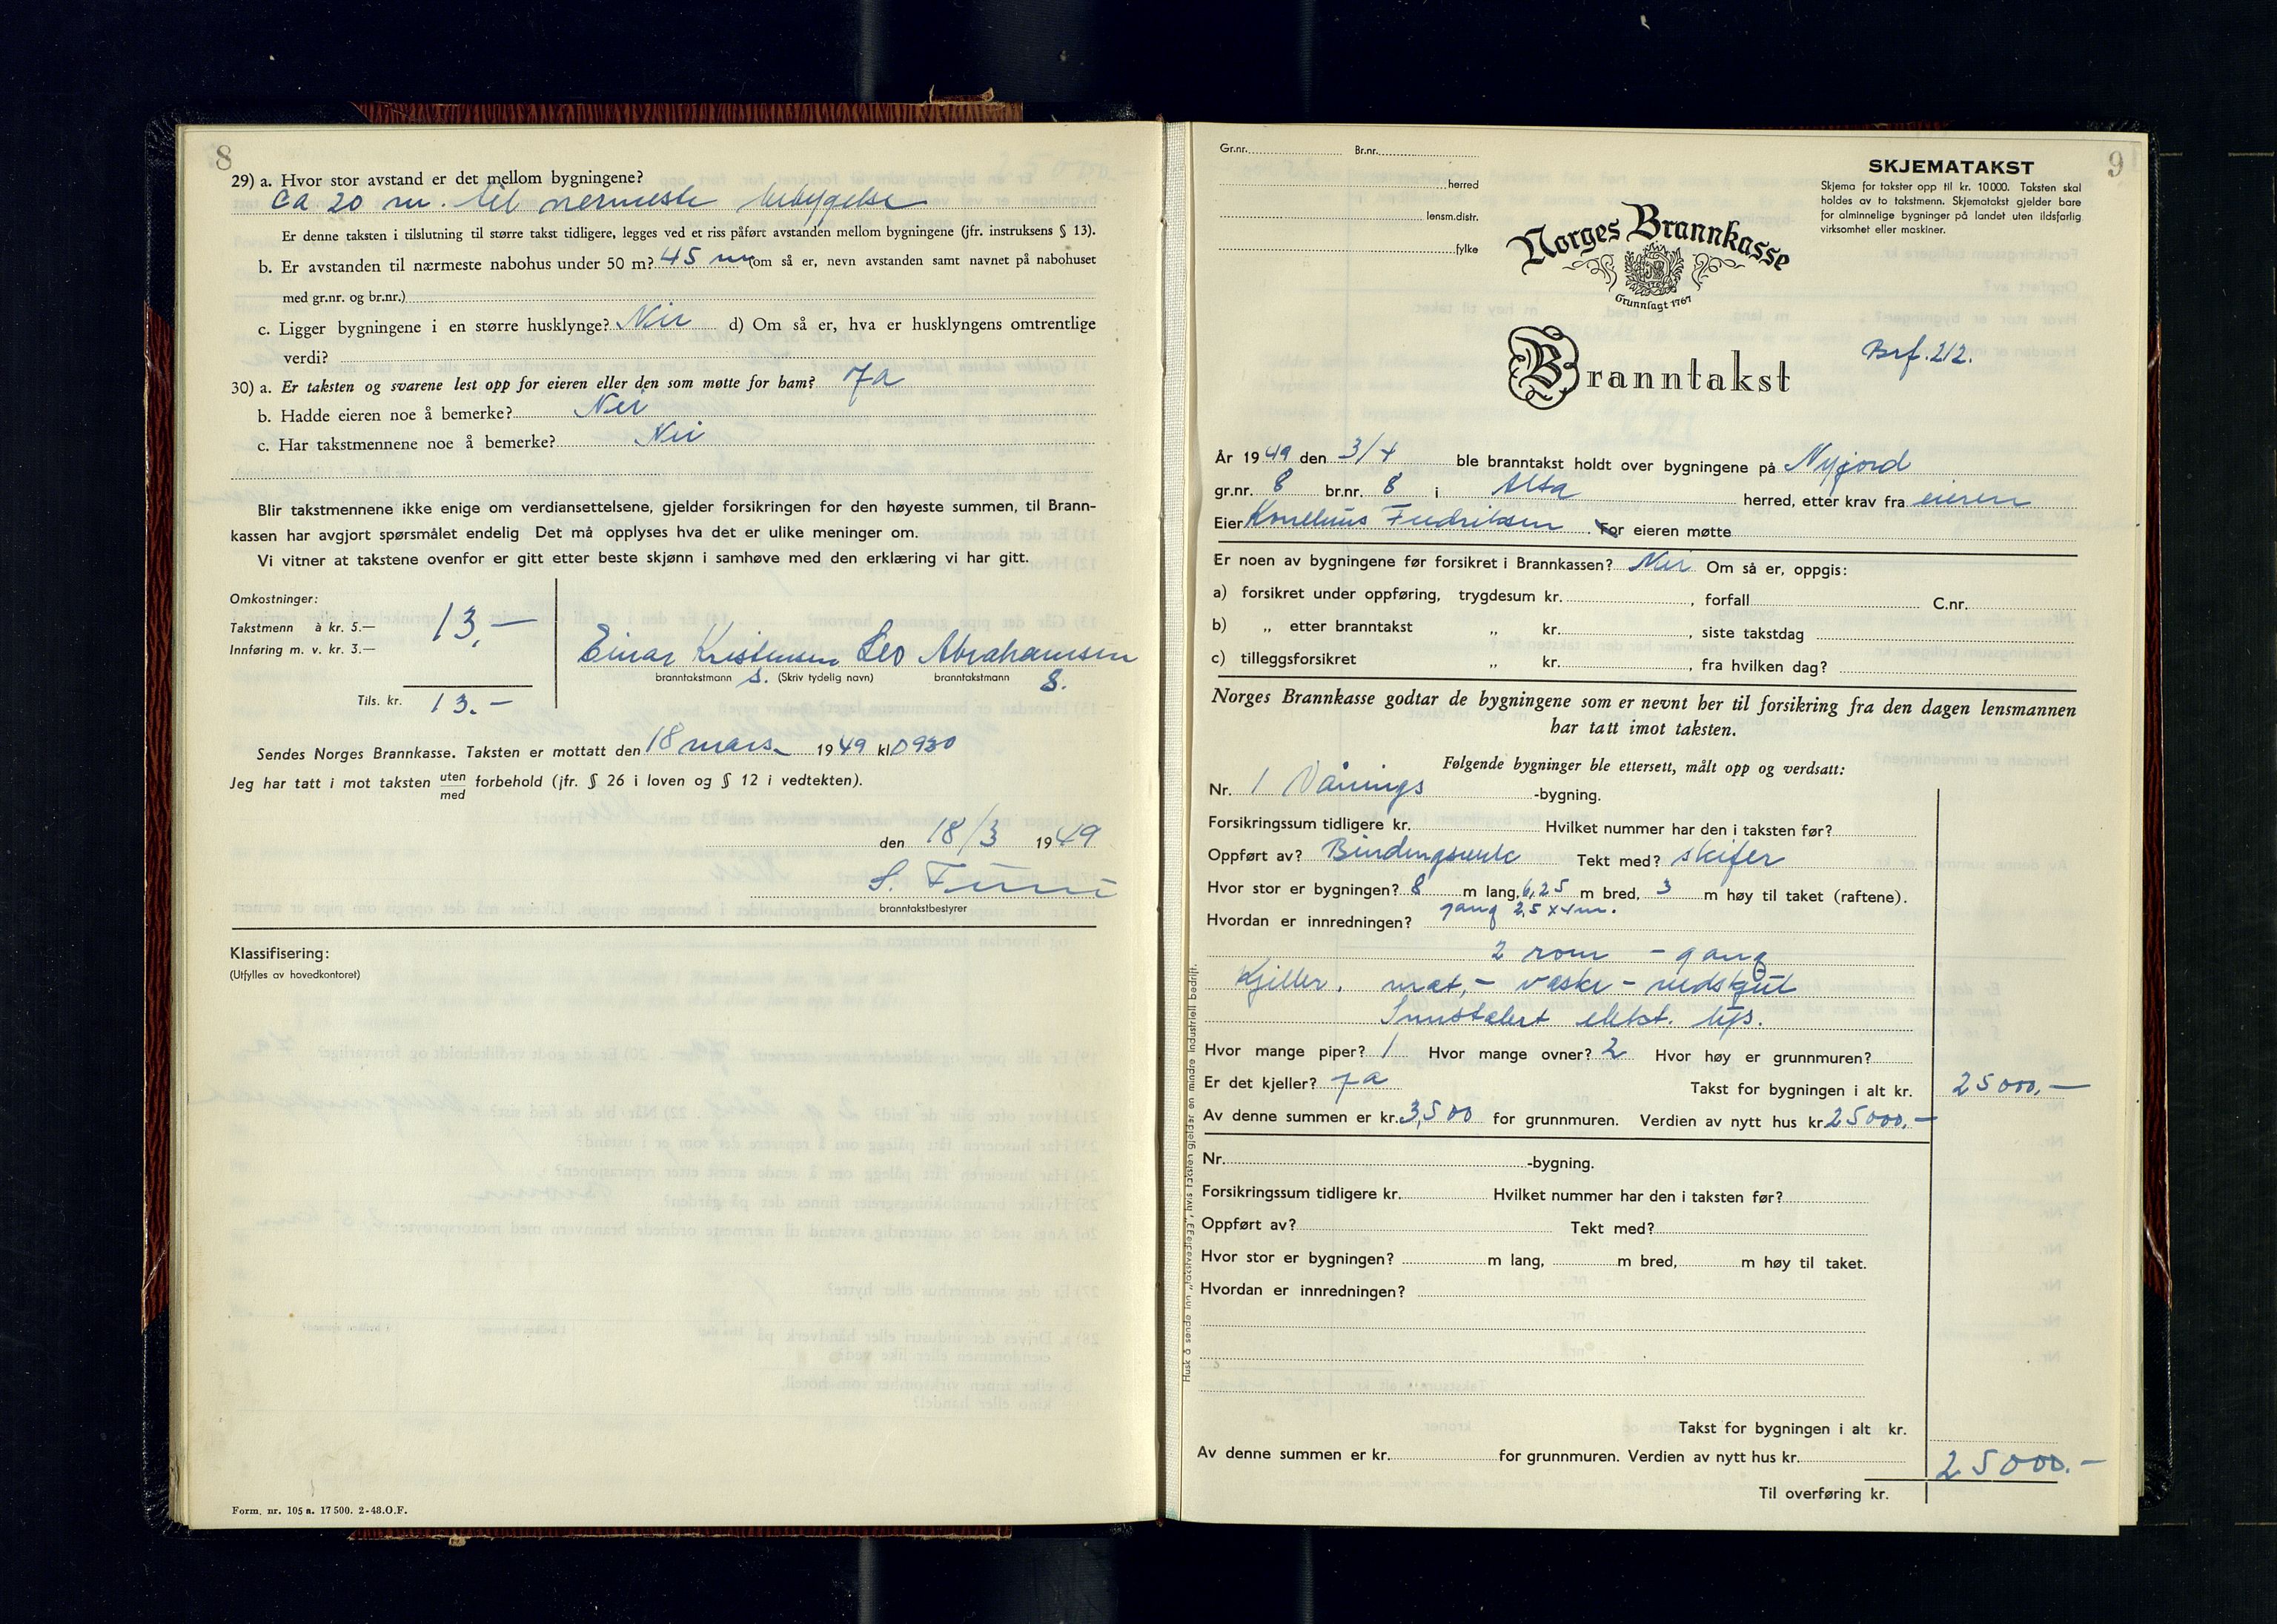 8
29) a. Hvor stor avstand er det mellom bygningene?
Ca 20 m. til nermeste bebygelse
Er denne taksten i tilslutning til større takst tidligere, legges ved et riss påført avstanden mellom bygningene (jfr. instruksens § 13).
b. Er avstanden til nærmeste nabohus under 50 m? 45 m (om så er, nevn avstanden samt navnet på nabohuset
med gr.nr. og br.nr.)
c. Ligger bygningene i en større husklynge? Nei d) Om så er, hva er husklyngens omtrentlige
verdi?
30) a. Er taksten og svarene lest opp for eieren eller den som møtte for ham? Ja
b. Hadde eieren noe å bemerke? Nei
c. Har takstmennene noe å bemerke? Nei
Blir takstmennene ikke enige om verdiansettelsene, gjelder forsikringen for den høyeste summen, til Brann-
kassen har avgjort spørsmålet endelig Det må opplyses hva det er ulike meninger om.
Vi vitner at takstene ovenfor er gitt etter beste skjønn i samhøve med den erklæring vi har gitt.
Omkostninger:
Takstmenn à kr. 5.— 13,—
Innføring m. v. kr. 3.—
Einar Kristensen Leo Abrahamsen
branntakstmann s. (Skriv tydelig navn) branntakstmann s.
Tils. kr. 13.-
Sendes Norges Brannkasse. Taksten er mottatt den 18 mars 1949 kl 0930
Jeg har tatt i mot taksten uten forbehold (jfr. § 26 i loven og § 12 i vedtekten).
med
den 18/3 1949
branntakstbestyrer
Klassifisering:
(Utfylles av hovedkontoret)
Form. nr. 105 a. 17 500. 2-48.O.F.
Gr.nr. Br.nr.
herred
lensm.distr.
fylke
9
SKJEMATAKST
Skjema for takster opp til kr. 10000. Taksten skal
holdes av to takstmenn. Skjematakst gjelder bare
for alminnelige bygninger på landet uten ildsfarlig
virksomhet eller maskiner.
Norges Brannkasse
Grunnlagt 1767
Branntakst
Brf. 212.
År 1949 den 3/4 ble branntakst holdt over bygningene på Nyjord
gr.nr. 8 br.nr. 8 i Alta herred, etter krav fra eieren
Eier Kornelius Fredriksen. For eieren møtte
Er noen av bygningene før forsikret i Brannkassen? Nei Om så er, oppgis:
a) forsikret under oppføring, trygdesum kr. , forfall C.nr.
b) „ etter branntakst „ kr. , siste takstdag
c) tilleggsforsikret „ kr. , fra hvilken dag?
Norges Brannkasse godtar de bygningene som er nevnt her til forsikring fra den dagen lensmannen
har tatt imot taksten.
Følgende bygninger ble ettersett, målt opp og verdsatt:
Nr. 1 Vånings -bygning.
Forsikringssum tidligere kr. Hvilket nummer har den i taksten før?
Oppført av? Bindingsverk Tekt med? skifer
Hvor stor er bygningen? 8 m lang, 6,25 m bred, 3 m høy til taket (raftene).
gang 2,5 x 4 m.
Hvordan er innredningen?
2 rom - gang
Kjeller, mat,- vaske - vedskjul
Innstalert elekt. lys.
Hvor mange piper? 1 Hvor mange ovner? 2 Hvor høy er grunnmuren?
Er det kjeller? ja Takst for bygningen i alt kr. 25000,—
Av denne summen er kr. 3,500 for grunnmuren. Verdien av nytt hus kr 25000,—
Nr. -bygning.
Forsikringssum tidligere kr. Hvilket nummer har den i taksten før?
Oppført av? Tekt med?
Hvor stor er bygningen? m lang, m bred, m høy til taket.
Hvordan er innredningen?
Takst for bygningen i alt kr.
Av denne summen er kr. for grunnmuren. Verdien av nytt hus kr.
25000.-
Til overføring kr.
Husk å sende inn „takstvedlegg", hvis taksten gjelder en mindre industriell bedrift.